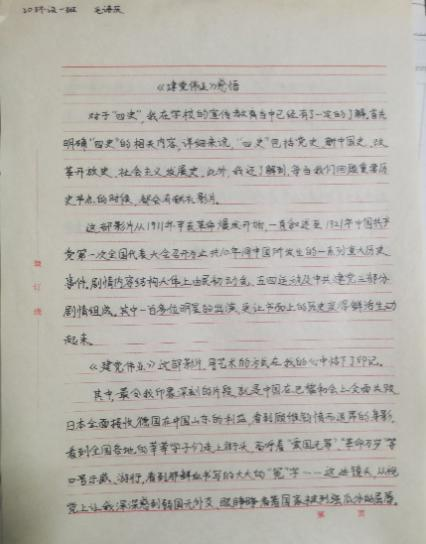 20环设一班 毛海茨
《建党伟业》感悟
对于“四史”,我在学校的宣传教育当中已经有了一定的了解。首先
明确“四史”的相关内容,详细来说,“四史”包括党史、新中国史、改
革开放史、社会主义发展史。此外,我还了解到,每当我们回顾重要历
史节点的时候,都会有献礼影片。
这部影片从1911年辛亥革命爆发开始,一直叙述至1921年中国共产
党第一次全国代表大会召开为止共10年间中国所发生的一系列重大历史
事件。剧情内容结构大体上由民初动乱、五四运动及中共建党三部分
剧情组成。其中一百多位明星的出演,更让书面上的历史变得鲜活生动
起来。
《建党伟业》这部影片,用艺术的方式在我的心中烙下了印记。
其中,最令我印象深刻的片段,就是中国在巴黎和会上全面失败
日本全面接收德国在中国山东的利益,看到顾维钧愤而送犀的身影,
看到全国各地的莘莘学子们走上街头,高呼着“卖国无罪”“革命万岁”等
口号示威、游行,看到那鲜血书写的大大的“冤”字……这些镜头,从视
觉上让我深深感到弱国无外交,眼睁睁看着国家被列强瓜分的屈辱。
装订线
第 页